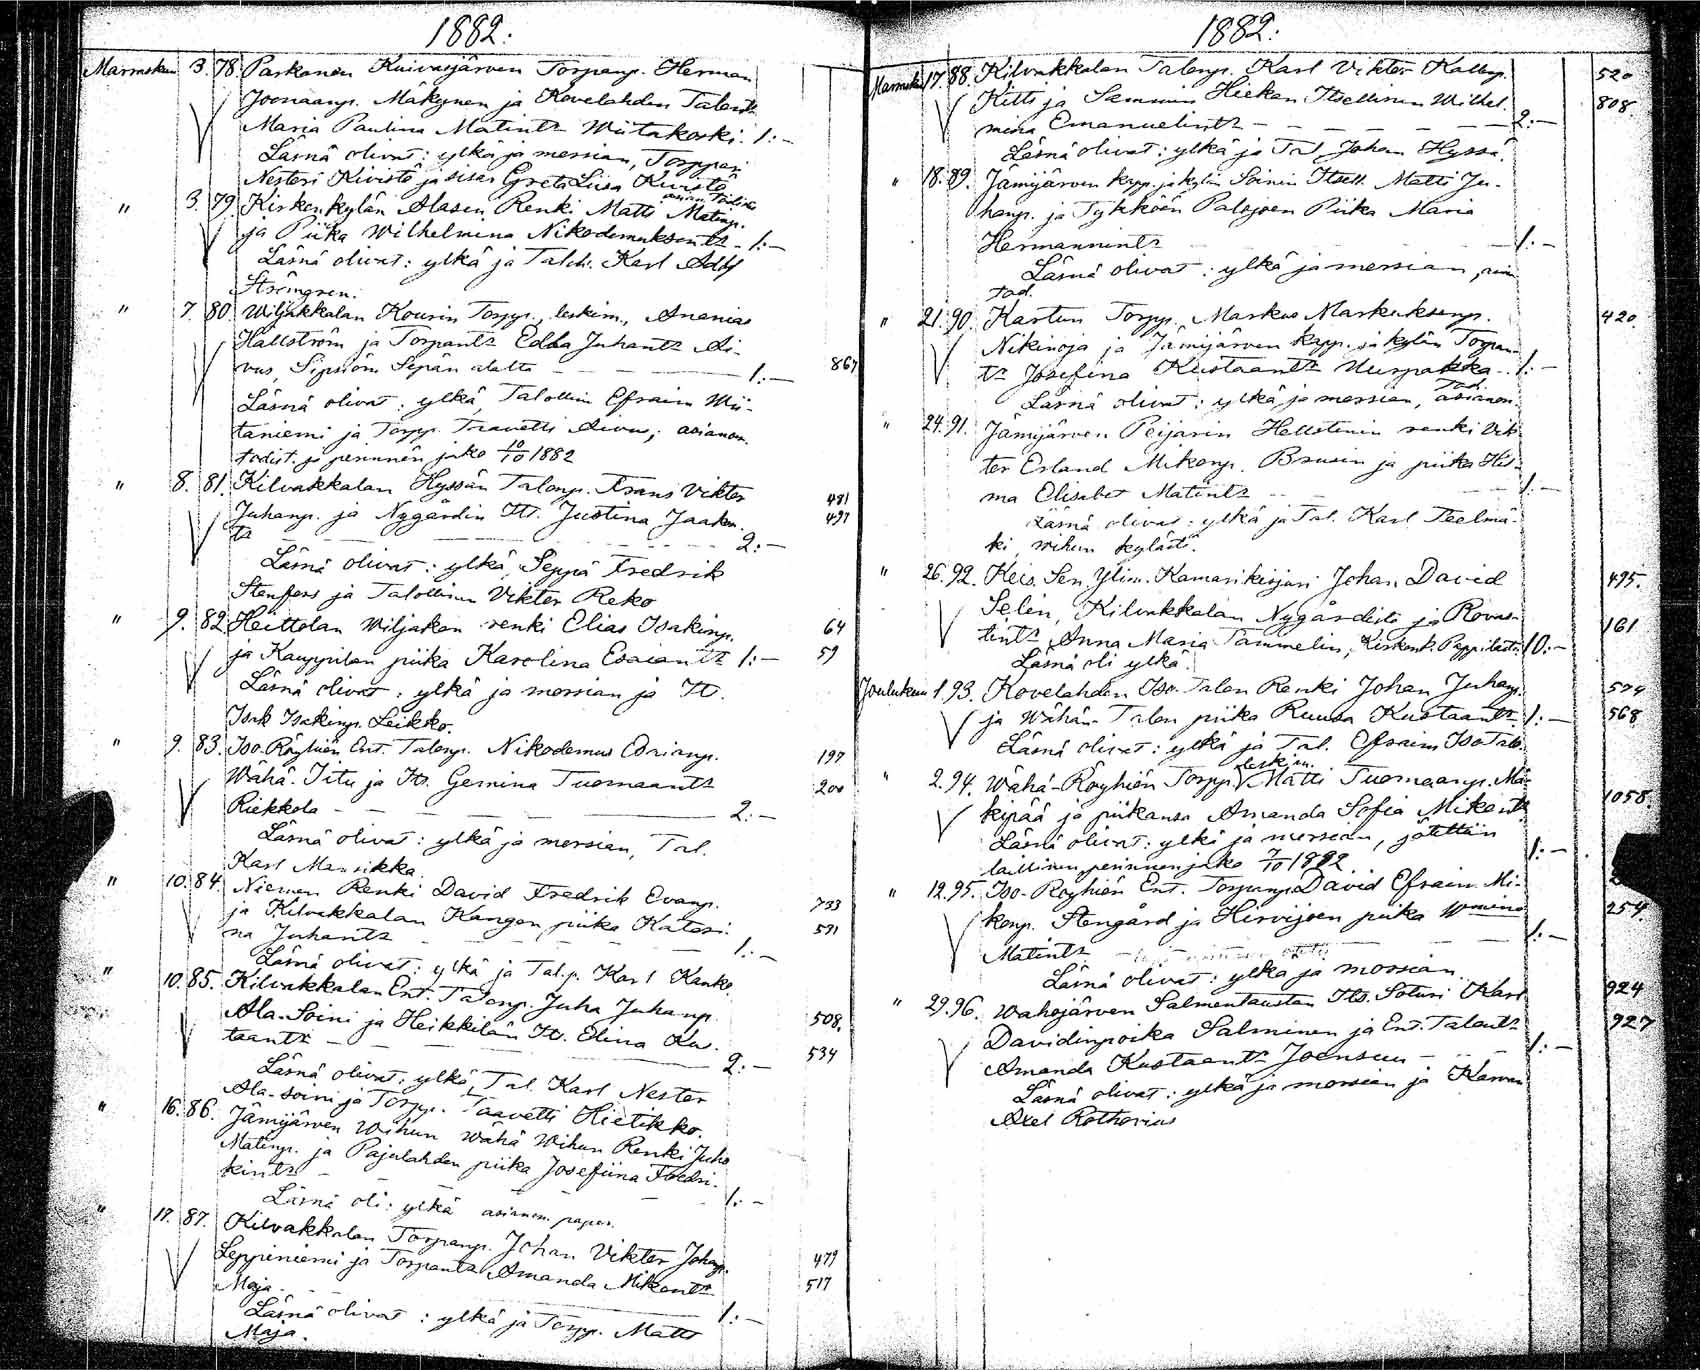 1882.
Marraskuu 3. 78. Parkanon Kuivasjärven Torpanp. Herman
Joonaanp. Mäkynen ja Kovelahden Talont.
Maria Paulina Matint. Wiitakoski. 1:-
Läsnä olivat: ylkä ja morsian, Torppari
Nestori Kivistö ja sisar Greta Liisa Kivistö
" 3. 79. Kirkonkylän Alasen Renki Matts Matinp.
ja Piika Wilhelmina Nikodemuksent. - 1:-
Läsnä olivat: ylkä ja Taloll. Karl Adolf
Strömgren.
" 7. 80. Wiljakkalan Kourin Torpp., leskim., Ananias
Hallström ja Torpant. Edla Juhant. Ai-
vus, Sipsiön Sepän alatta - - 1:- 867
Läsnä olivat: ylkä, Talollin. Efraim Wii-
taniemi ja Torpp. Taavetti Aivus; asianom.
todist. ja perinnön jako 10/10 1882
" 8. 81. Kilvakkalan Hyssän Talonp. Frans Viktor 481
Juhanp. ja Nygårdin Its. Justina Jaakon. 497
t. - - 2:-
Läsnä olivat: ylkä, Seppä Fredrik
Stenfors ja Talollinen Viktor Reko
" 9. 82. Heittolan Wiljakan renki Elias Isakinp. 64
ja Kauppilan piika Karolina Esaiant. 1:- 59
Läsnä olivat: ylkä ja morsian ja It.
Isak Isakinp. Leikko.
" 9. 83. Iso-Röyhiön Ent. Talonp. Nikodemus Adrianp. 197
Wähä-Iitu ja Its. Gemina Tuomaant. 200
Riekkola - - 2:-
Läsnä olivat: ylkä ja morsian, Tal.
Karl Mansikka.
" 10. 84. Niemen Renki David Fredrik Evanp. 733
ja Kilvakkalan Kangon piika Katari- 531
na Juhant. - - 1:-
Läsnä olivat: ylkä ja Tal.p. Karl Kanko.
" 10. 85. Kilvakkalan Ent. Talonp. Juha Juhanp.
Ala-Soini ja Heikkilän It. Elina Kus- 508.
taant. - - 2:- 534
Läsnä olivat: ylkä, Tal. Karl Nestor
Ala-Soini ja Torpp. Taavetti Hietikko.
" 16. 86. Jämijärven Wihun Wähä Wihun Renki Juho
Matinp. ja Pajulahden piika Josefiina Fredri-
kint. - - 1:-
Läsnä oli: ylkä asianom. paper.
" 17. 87. Kilvakkalan Torpanp. Johan Viktor Johanp. 479
Leppiniemi ja Torpant. Amanda Mikont. 517
Maja. - - 1:-
Läsnä olivat: ylkä ja Torpp. Matts
Maja.
1882.
Marrask. 17. 88. Kilvakkalan Talonp. Karl Viktor Kallenp. 520
Kitti ja Sammin Heikan Itsellinen Wilhel- 808
mina Emanuelint. - - 2:-
Läsnä olivat: ylkä ja Tal. Johan Hyssä.
" 18. 89. Jämijärven kapp. ja kylän Soinin Itsell. Matti Ju-
hanp. ja Tykköön Palojoen Piika Maria
Hermannint. - 1:-
Läsnä olivat: ylkä ja morsian,
tod.
" 21. 90. Kartun Torpp. Markus Markuksenp. 420
Nikinoja ja Jämijärven kapp. ja kylän Torpan-
t. Josefina Kustaant. Uuspakka. 1:-
Läsnä olivat: ylkä ja morsian, asianom. tod.
" 24. 91. Jämijärven Peijarin Hellstenin renki Vik-
tor Erland Mikonp. Brusin ja piika Hil-
ma Elisabet Matint. - - 1:-
Läsnä olivat: ylkä ja Tal. Karl Teelmä-
ki, Wihun kylästä.
" 26. 92. Keis. Sen. Ylim. Kamarikirjuri Johan David 495.
Selin, Kilvakkalan Nygårdista ja Rovas-
tint. Anna Maria Tammelin, Kirkonk. Pappilasta. 10:- 161
Läsnä oli ylkä.
Joulukuu 1. 93. Kovelahden Iso-Talon Renki Johan Juhanp. 574
ja Wähän-Talon piika Ruusa Kustaant. 1:- 568
Läsnä olivat: ylkä ja Tal. Efraim IsoTalo.
" 2. 94. Wähä-Röyhiön Torpp. leskim. Matti Tuomaanp. Mä-
kipää ja piikansa Amanda Sofia Mikont. 1058.
Läsnä olivat: ylkä ja morsian, jätettiin
laillinen perinnönjako 7/10 1882 1:-
" 12. 95. Iso-Röyhiön Ent. Torpanp. David Efraim Mi-
konp. Stengård ja Hirvijoen piika Wmina 254.
Matint. - - 1:-
Läsnä olivat: ylkä ja morsian.
" 29. 96. Wahojärven Salmentaustan Its. Soturi Karl 924
Davidinpoika Salminen ja Ent. Talont. 927
Amanda Kustaant. Joensuu - 1:-
Läsnä olivat: ylkä ja morsian ja Karvari
Axel Rothovius